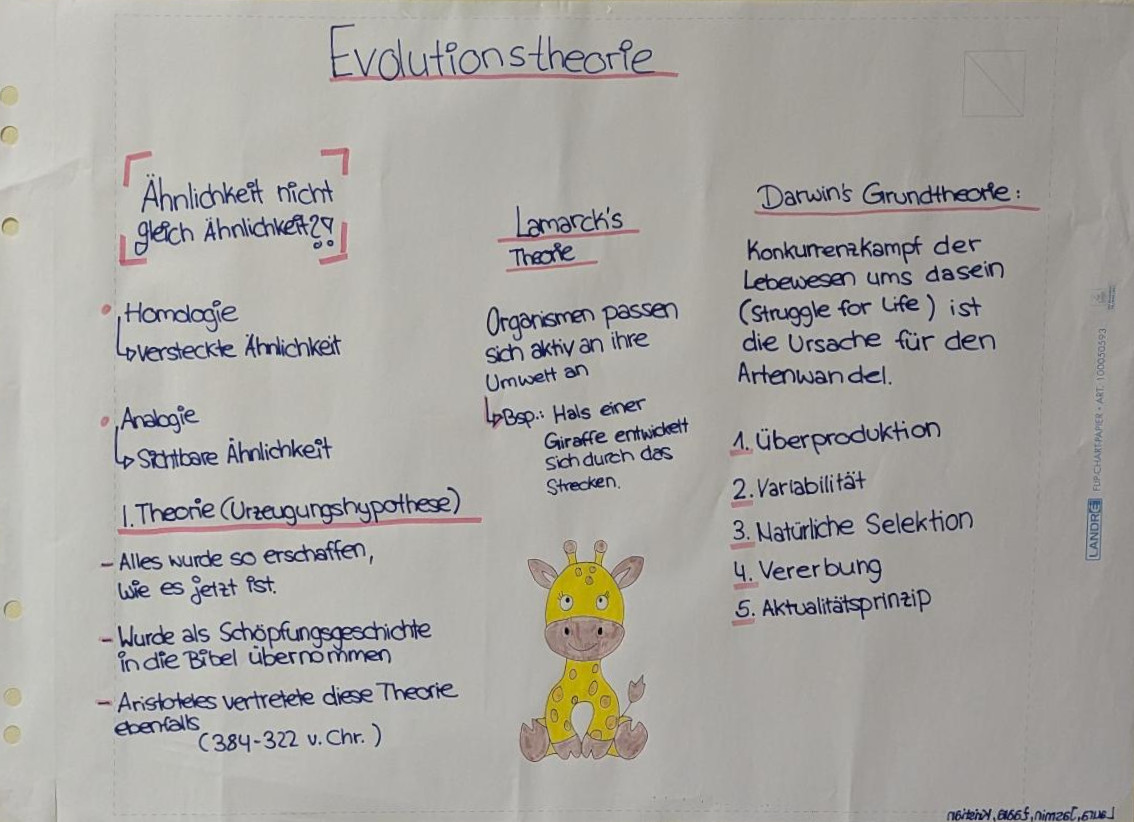 Evolutionstheorie
Ähnlichkeit nicht
gleich Ähnlichkeit??
Homologie
↳ versteckte Ähnlichkeit
Analogie
↳ Sichtbare Ähnlichkeit
1. Theorie (Urzeugungshypothese)
- Alles wurde so erschaffen,
wie es jetzt ist.
- Wurde als Schöpfungsgeschichte
in die Bibel übernommen
- Aristoteles vertretete diese Theorie
ebenfalls
(384-322 v. Chr.)
Lamarck's
Theorie
Organismen passen
sich aktiv an ihre
Umwelt an
↳ Bsp.: Hals einer
Giraffe entwickelt
sich durch das
Strecken.
Darwin's Grundtheorie:
Konkurrenzkampf der
Lebewesen ums dasein
(Struggle for Life) ist
die Ursache für den
Artenwandel.
1. Überproduktion
2. Variabilität
3. Natürliche Selektion
4. Vererbung
5. Aktualitätsprinzip
LANDRÉ FLIP-CHART-PAPIER • ART. 100050593
Laura, Jasmin,